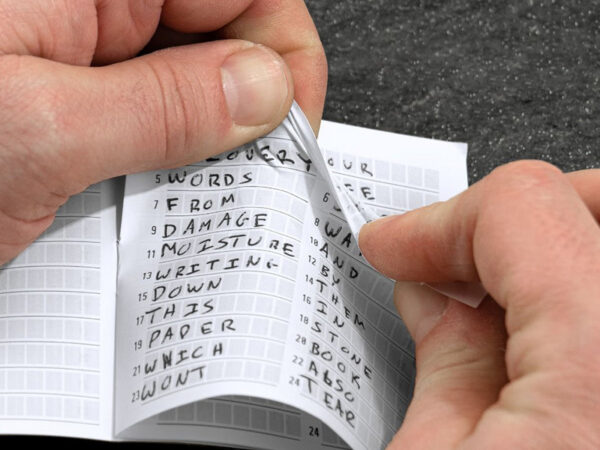 OVERY
5 WORDS
7 FROM
9 DAMAGE
11 MOISTURE
13 WRITING
15 DOWN
17 THIS
19 PAPER
21 WHICH
23 WONT
OUR
6
8 WA
10 AND
12 BY
14 THEM
16 IN
18 STONE
20 BOOK
22
24 TEAR
24